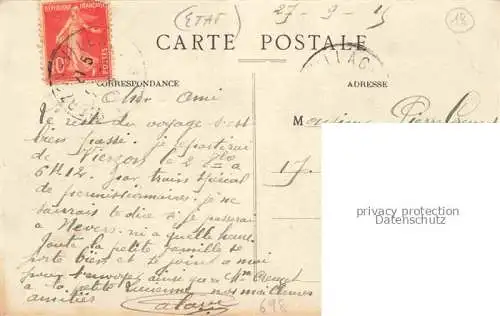 (ETAT)
27-9-15
18
RÉPUBLIQUE FRANÇAISE
10
POSTES
CARTE POSTALE
CORRESPONDANCE
ADRESSE
Cher Ami
Le reste du voyage s'est
bien passé. je repartirai
de Vierzon le 2 8bre à
6h12 par train spécial
de permissionnaires. je ne
saurais te dire si je passerai
à Nevers ni a quelle heure.
Toute la petite famille se
porte bien et se joint a moi
pour t'envoyer ainsi que Mme
a la petite Lucienne nos meilleures
amitiés
698
Monsieur Pierre
17.
privacy protection
Datenschutz